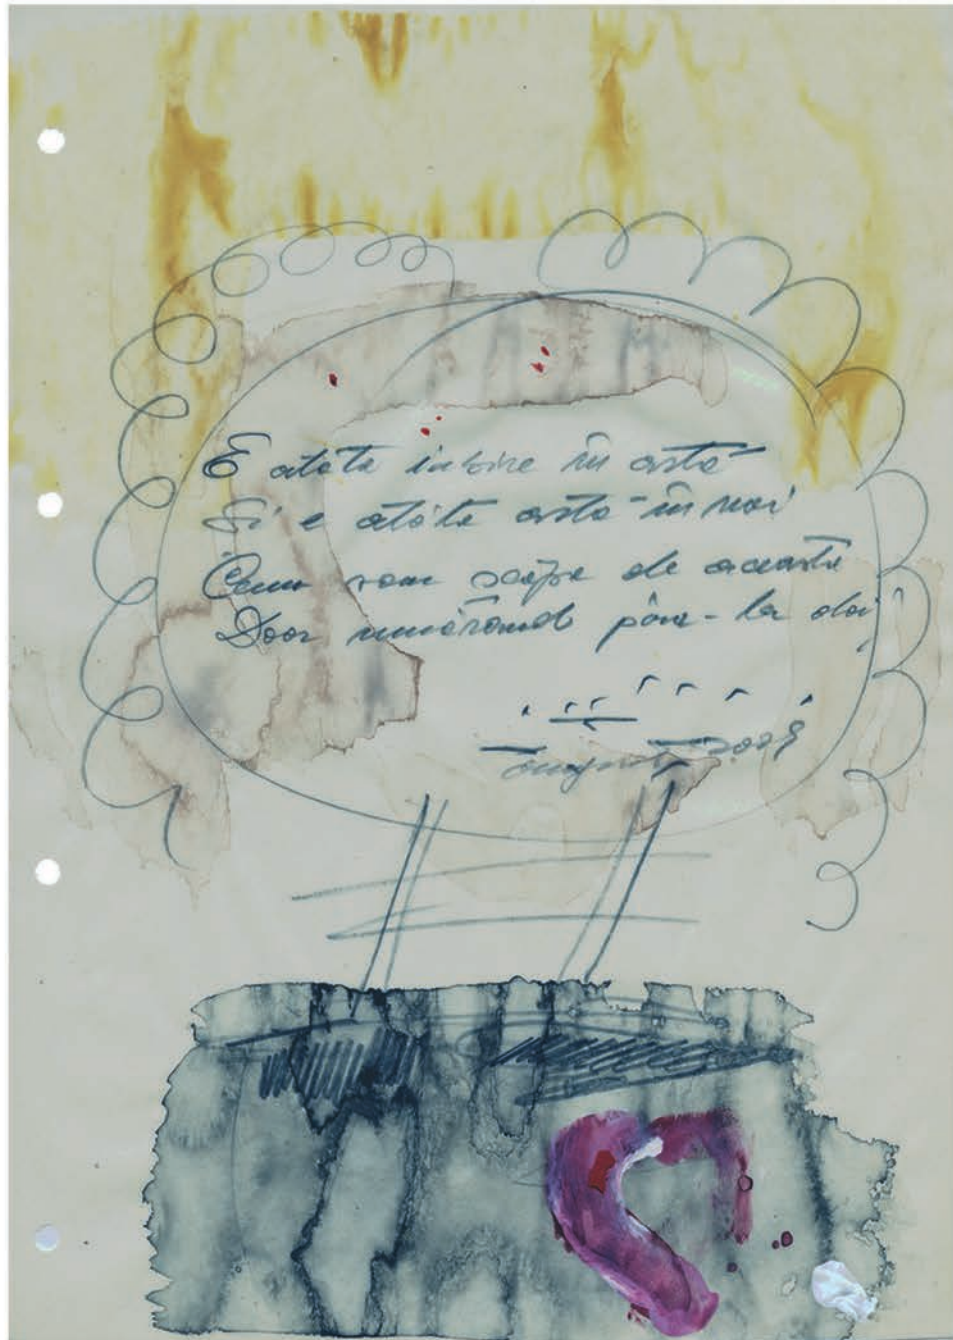 E atâta iubire în artă
Și e atâta artă în noi
Cum vom scăpa de aceasta
Doar numărând până-la doi